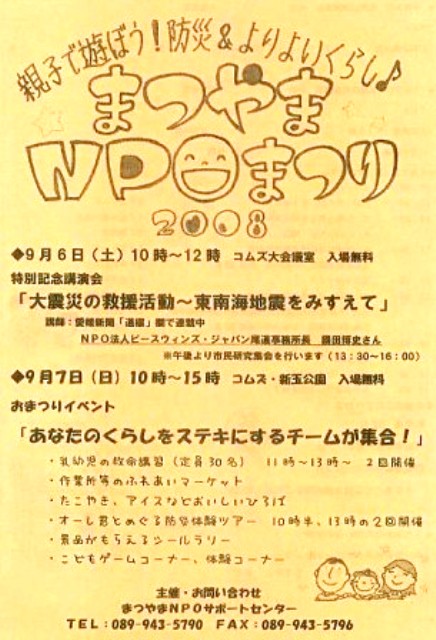 親子で遊ぼう！防災&よりよいくらし♪
まつやま
NPOまつり
2008
◆9月6日（土）10時～12時　コムズ大会議室　入場無料
特別記念講演会
「大震災の救援活動～東南海地震をみすえて」
講師：愛媛新聞「道標」欄で連載中
NPO法人ピースウィンズ・ジャパン尾道事務所長　國田博史さん
※午後より市民研究集会を行います（13：30～16：00）
◆9月7日（日）10時～15時　コムズ・新玉公園　入場無料
おまつりイベント
「あなたのくらしをステキにするチームが集合！」
・乳幼児の救命講習（定員30名）　11時～13時～　2回開催
・作業所等のふれあいマーケット
・たこやき、アイスなどおいしいひろば
・オーレ君とめぐる防災体験ツアー　10時半、13時の2回開催
・景品がもらえるシールラリー
・こどもゲームコーナー、体験コーナー
主催・お問い合わせ
まつやまNPOサポートセンター
TEL：089-943-5790　FAX：089-943-5796